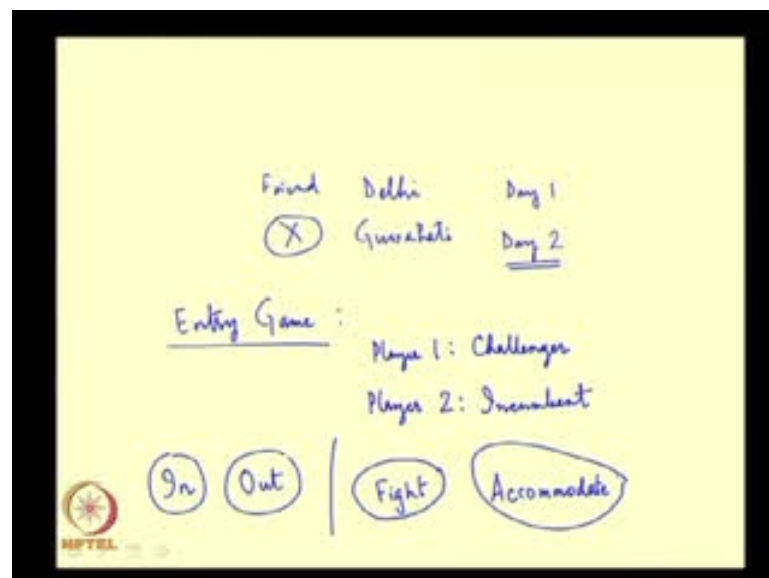 Friend Delhi Day 1
X Guwahati Day 2
Entry Game :
Player 1 : Challenger
Player 2 : Incumbent
In Out | Fight Accommodate
NPTEL